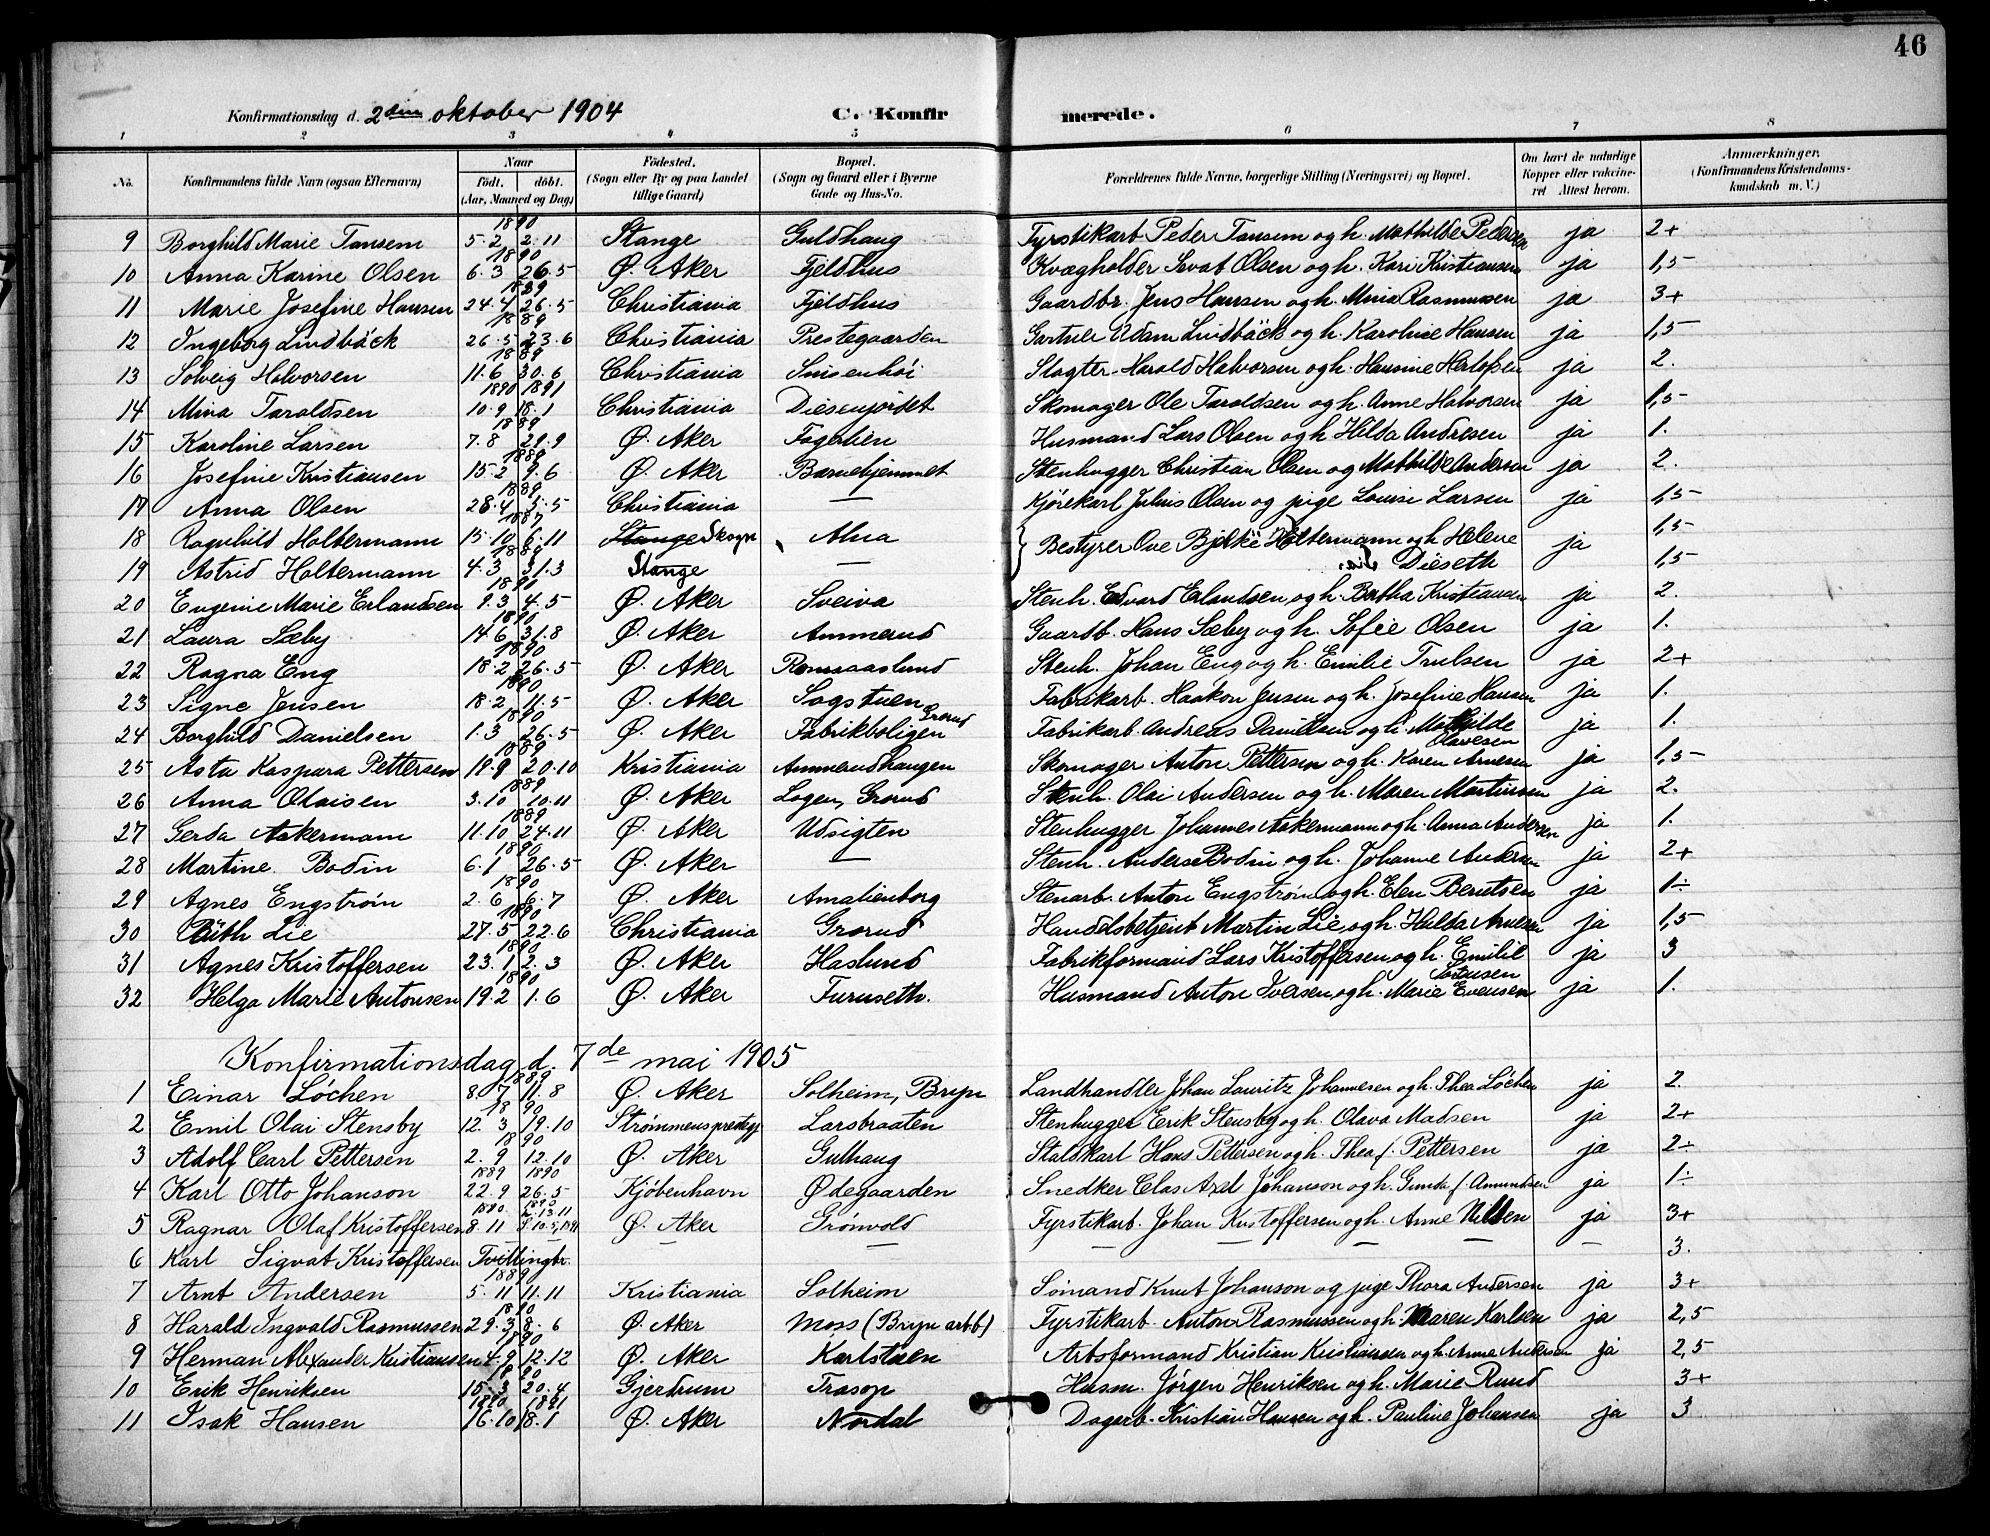 46
Konfirmationsdag d. 2den oktober 1904 C. Konfirmerede.
1 2 3 4 5 6 7 8
No. Konfirmandens fulde Navn (ogsaa Efternavn) Naar födt. döbt. (Aar, Maaned og Dag) Födested. (Sogn eller By og paa Landet tillige Gaard) Bopæl. (Sogn og Gaard eller i Byerne Gade og Hus-No. Forældrenes fulde Navne, borgerlige Stilling (Næringsvei) og Bopæl. Om havt de naturlige Kopper eller vakcineret Attest herom. Anmærkninger. (Konfirmandens Kristendomskundskab m. V.)
9 Borghild Marie Tansem 1890 5.2 2.11 Stange Guldhaug Fyrstikarb. Peder Tansem og h. Mathilde Pedersen ja 2+
10 Anna Karine Olsen 1890 6.3 26.5 Ø. Aker Fjeldhus Kvægholder Sevat Olsen og h. Kari Kristiansen ja 1,5
11 Marie Josefine Hansen 1889 24.4 26.5 Christiania Fjeldhus Gaardbr. Jens Hansen og h. Mina Rasmussen ja 3+
12 Ingeborg Lindbäck 1889 26.5 23.6 Christiania Prestegaarden Gartner Adam Lindbäck og h. Karoline Hansen ja 1,5
13 Solveig Halvorsen 1889 11.6 30.6 Christiania Slagter Harald Halvorsen og h. Hansine ja 2.
14 Mina Taraldsen 1890 1891 10.9 18.1 Christiania Disenjordet Skomager Ole Taraldsen og h. Anne Halvorsen ja 1,5
15 Karoline Larsen 1889 7.8 29.9 Ø. Aker Fagerlien Husmand Lars Olsen og h. Hilda Andresen ja 1.
16 Josefine Kristiansen 1889 15.2 9.6 Ø. Aker Barnehjemmet Stenhugger Christian Olsen og Mathilde Andersen ja 2.
17 Anna Olsen 1889 28.4 5.5 Christiania — Kjörekarl Julius Olsen og pige Louise Larsen ja 1,5
18 Ragnhild Holtermann 1887 15.10 6.11 Stange Skogn Alna Bestyrer Ove Bjelke Holtermann og h. Helene ja 1,5
19 Astrid Holtermann 1889 4.3 31.3 Stange — Dieseth 1,5
20 Eugenie Marie Erlandsen 1890 9.3 4.5 Ø. Aker Sveiva Stenh. Edvard Erlandsen og h. Betha Kristiansen ja 2.
21 Laura Sæby 1890 14.6 31.8 Ø. Aker Ammerud Gaardb. Hans Sæby og h. Sofie Olsen ja 1.
22 Ragna Eng 1890 18.2 26.5 Ø. Aker Romsaaslund Stenh. Johan Eng og h. Emilie Trulsen ja 2+
23 Signe Jensen 1890 18.2 11.5 Ø. Aker Sagstuen Fabrikarb. Haakon Jensen og h. Josefine Hansen ja 1.
24 Borghild Danielsen 1890 1.3 26.5 Ø. Aker Fabrikboligen Grorud Fabrikarb. Andreas Danielsen og h. Mathilde Olavesen ja 1.
25 Asta Kaspara Pettersen 1889 19.9 20.10 Kristiania Ammerudhaugen Skomager Anton Pettersen og h. Karen Arnesen ja 1,5
26 Anna Olaisen 1889 3.10 10.11 Ø. Aker Lagen, Grorud Stenh. Olai Andersen og h. Maren Martinsen ja 2.
27 Gerda Aakermann 1889 11.10 24.11 Ø. Aker Udsigten Stenhugger Johannes Aakermann og h. Anna Andersen ja 1.
28 Martine Bodin 1890 6.1 26.5 Ø. Aker — Stenh. Anders Bodin og h. Johanne Andersen ja 2+
29 Agnes Engström 1890 2.6 6.7 Ø. Aker Amalienborg Stenarb. Anton Engström og h. Elen Berntsen ja 1÷
30 Ruth Lie 1890 27.5 22.6 Christiania Grorud Handelsbetjent Martin Lie og h. Hilda Arnesen ja 1,5
31 Agnes Kristoffersen 1890 23.1 2.3 Ø. Aker Haslund Fabrikformand Lars Kristoffersen og h. Emilie ja 3
32 Helga Marie Antonsen 1890 19.2 1.6 Ø. Aker Furuseth. Husmand Anton Iversen og h. Marie Evensen ja 1.
Konfirmationsdag d. 7de mai 1905
1 Einar Löchen 1889 8.7 11.8 Ø. Aker Solheim, Bryn Landhandler Johan Lauritz Johannesen og h. Thea Löchen ja 2.
2 Emil Olai Stensby 1890 12.3 19.10 Strømmens prestegj Larsbraaten Stenhugger Erik Stensby og h. Olava Madsen ja 2+
3 Adolf Carl Pettersen 1890 2.9 12.10 Ø. Aker Gulhaug Staldkarl Hans Pettersen og h. Thea f. Pettersen ja 2÷
4 Karl Otto Johanson 1889 1890 22.9 26.5 Kjøbenhavn Ødegaarden Snedker Clas Axel Johanson og h. Gunda f. Amundsen ja 1÷
5 Ragnar Olaf Kristoffersen 1890 8.11 Ø. Aker Grönvold Fyrstikarb. Johan Kristoffersen og h. Anne Nilsen ja 3+
6 Karl Sigvat Kristoffersen Tvillingbr. — — — — — — — 3.
7 Arnt Andersen 1889 5.11 11.11 Kristiania Solheim Sömand Knut Johanson og pige Thora Andersen ja 3+
8 Harald Ingvald Rasmussen 1890 29.3 8.6 Ø. Aker Moss (Bryn arb.b) Fyrstikarb. Anton Rasmussen og h. Maren Karlsen ja 2,5
9 Herman Alexander Kristiansen 1890 4.9 12.12 Ø. Aker Karlstuen Arbsformand Kristian Kristiansen og h. Anne Andersen ja 2,5
10 Erik Henriksen 1890 15.3 20.4 Gjerdrum Trasop Husm. Jörgen Henriksen og h. Marie Rund 3+
11 Isak Hansen 1890 1891 16.10 18.1 Ø. Aker Nordal Dagarb. Kristian Hansen og h. Pauline Johansen ja 3